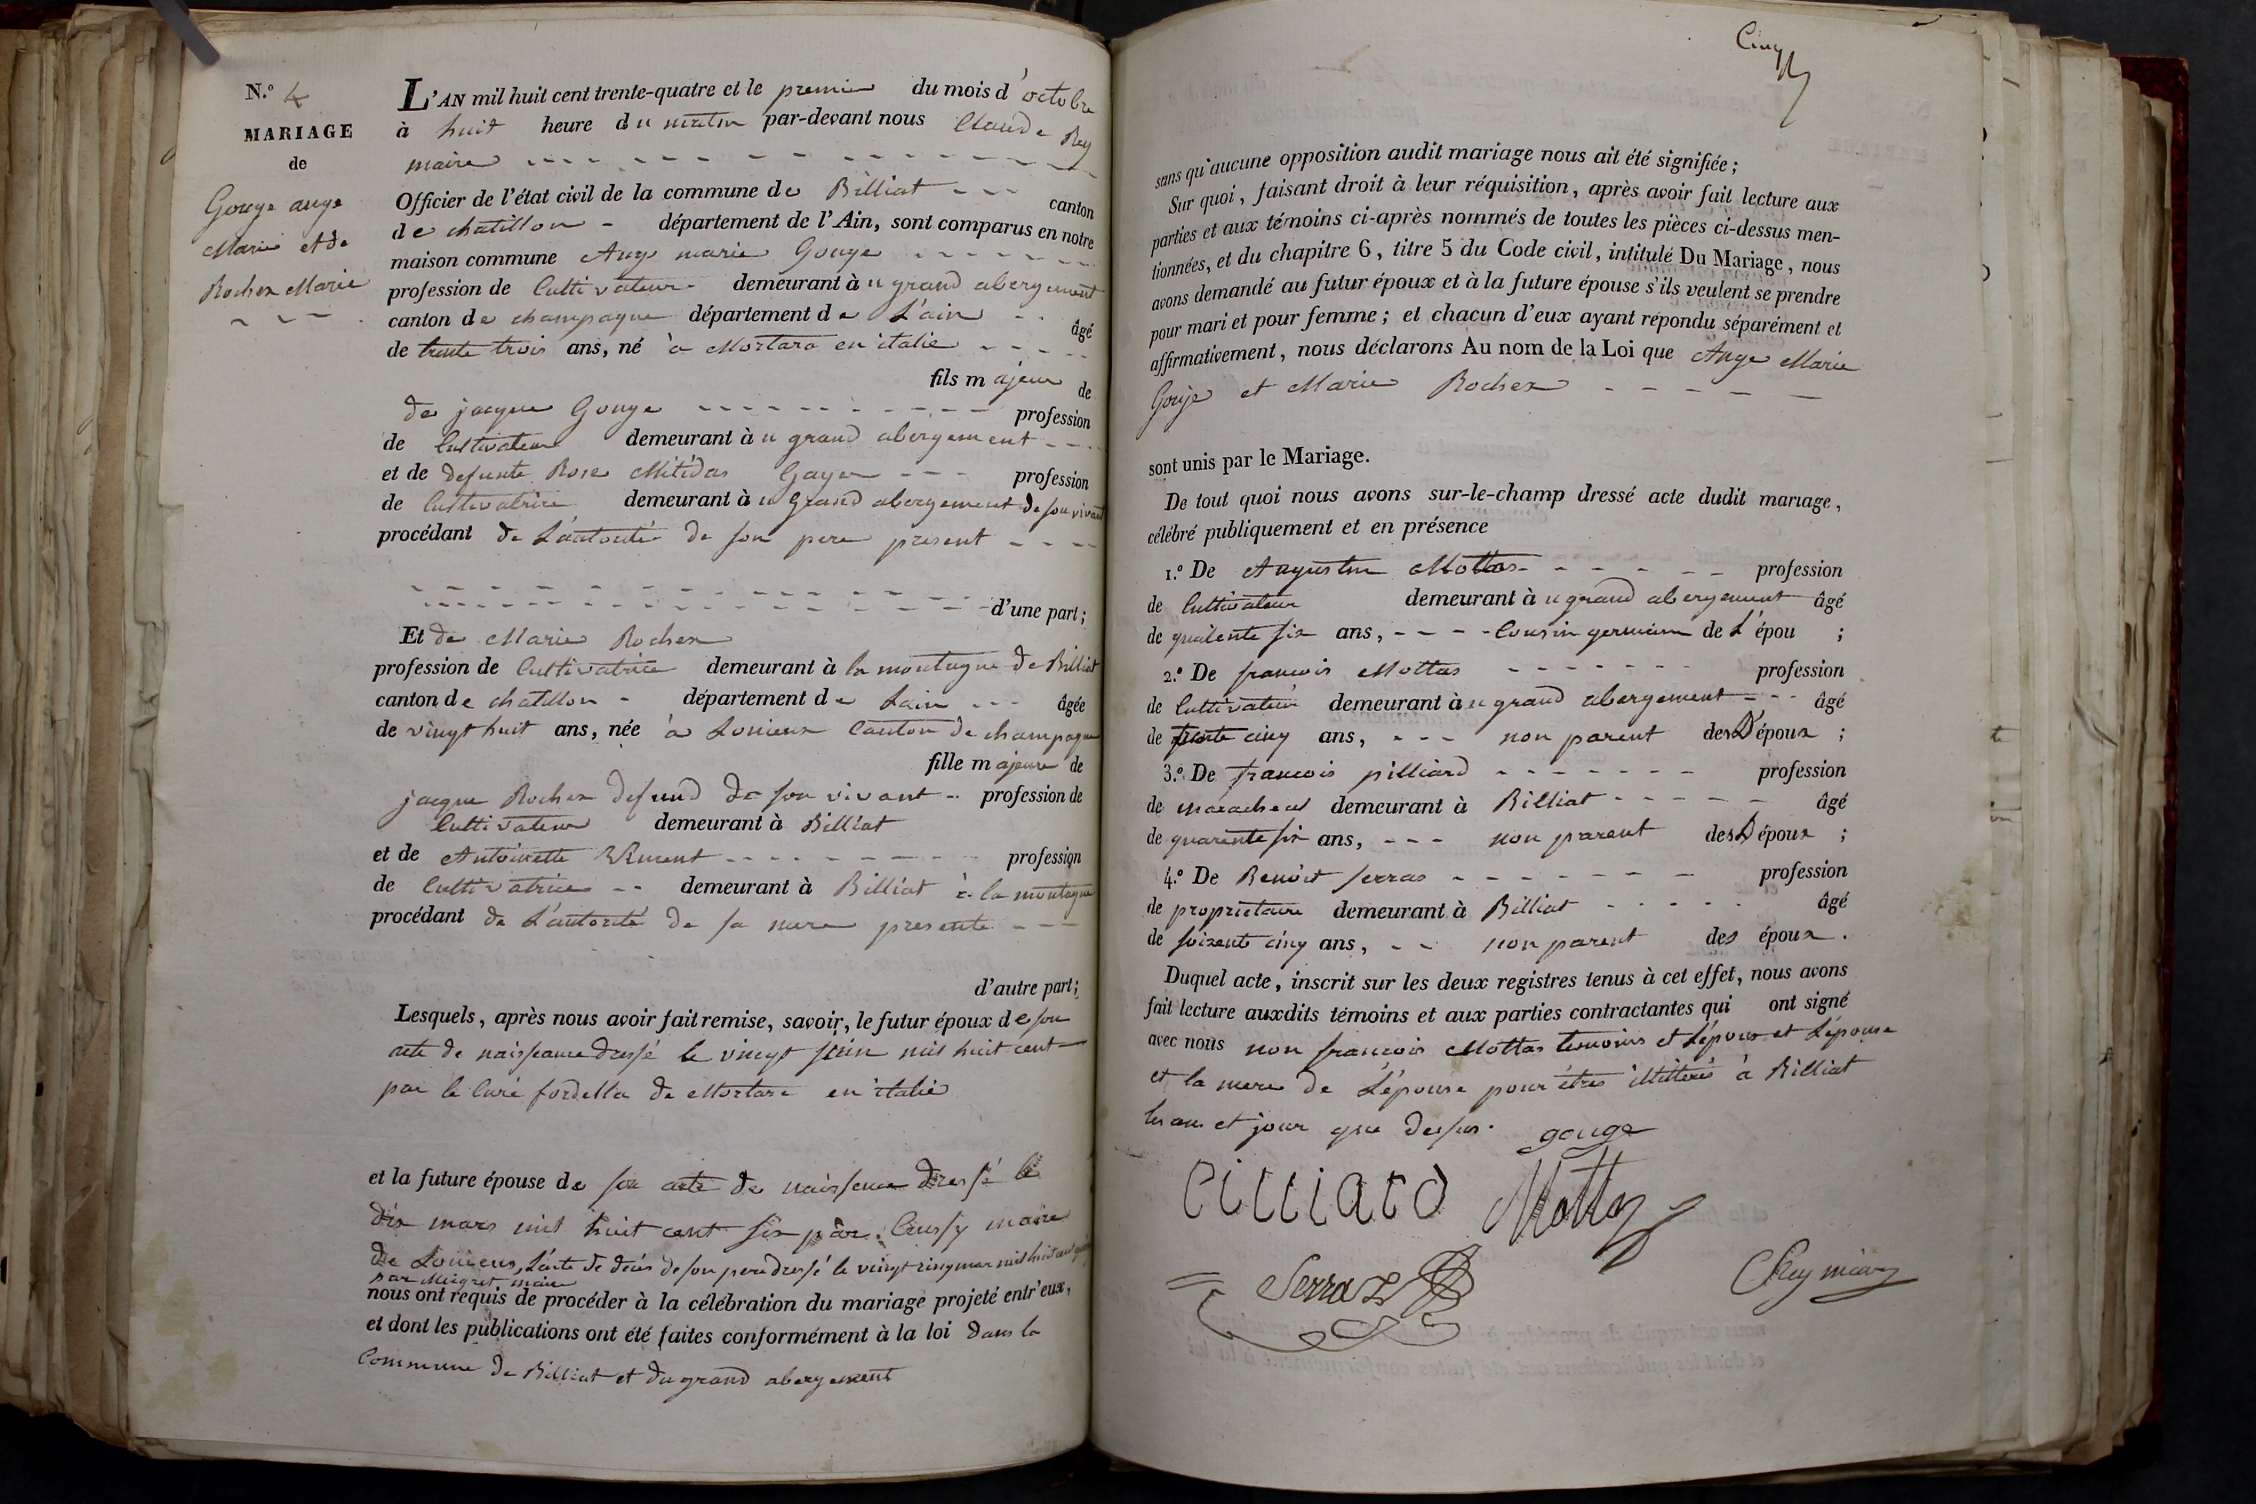 N.º 4
MARIAGE
de
Gouge ange
Marie et de
Rochex Marie
L'AN mil huit cent trente-quatre et le premier du mois d'octobre
à huit heure du matin par-devant nous Claude Rey
maire
Officier de l'état civil de la commune de Billiat canton
de chatillon département de l'Ain, sont comparus en notre
maison commune Ange marie Gouge
profession de Cultivateur demeurant à u grand abergement
canton de champagne département de L'ain âgé
de trente trois ans, né à Mortara en italie
fils majeur de
de jacque Gouge profession
de Cultivateur demeurant à u grand abergement
et de defunte Rose Mitidas Gayer profession
de Cultivatrice demeurant à u Grand abergement de son vivant
procédant de L'autorité de son pere present
d'une part;
Et de Marie Rochex
profession de Cultivatrice demeurant à la montagne de Billiat
canton de chatillon département de Lain âgée
de vingt huit ans, née à Lonieux Canton de champagne
fille majeure de
jacque Rochex defund de son vivant profession de
Cultivateur demeurant à Billiat
et de Antoinette profession
de Cultivatrice demeurant à Billiat à la montagne
procédant de L'autorité de sa mere presente
d'autre part;
Lesquels, après nous avoir fait remise, savoir, le futur époux de son
acte de naissance dressé le vingt juin mil huit cent
par le Curé fordella de Mortara en italie
et la future épouse de son acte de naissance dressé le
dix mars mil huit cent six par Cussy maire
de Lonieux, L'acte de décès de son pere dressé le vingt cinq mars mil huit cent
par maire
nous ont requis de procéder à la célébration du mariage projeté entr'eux,
et dont les publications ont été faites conformément à la loi dans la
Commune de Billiat et du grand abergement
Cinq
sans qu'aucune opposition audit mariage nous ait été signifiée;
Sur quoi, faisant droit à leur réquisition, après avoir fait lecture aux
parties et aux témoins ci-après nommés de toutes les pièces ci-dessus men-
tionnées, et du chapitre 6, titre 5 du Code civil, intitulé Du Mariage, nous
avons demandé au futur époux et à la future épouse s'ils veulent se prendre
pour mari et pour femme; et chacun d'eux ayant répondu séparément et
affirmativement, nous déclarons Au nom de la Loi que Ange Marie
Gouje et Marie Rochex
sont unis par le Mariage.
De tout quoi nous avons sur-le-champ dressé acte dudit mariage,
célébré publiquement et en présence
1.º De Augustin Mottas profession
de Cultivateur demeurant à u grand abergement âgé
de quarente six ans, Cousin germain de L'épou ;
2.º De francois Mottas profession
de Cultivateur demeurant à u grand abergement âgé
de trente cinq ans, non parent des époux ;
3.º De francois pilliard profession
de marachal demeurant à Billiat âgé
de quarente six ans, non parent des époux ;
4.º De Benoit Serras profession
de proprietaire demeurant à Billiat âgé
de soixente cinq ans, non parent des époux.
Duquel acte, inscrit sur les deux registres tenus à cet effet, nous avons
fait lecture auxdits témoins et aux parties contractantes qui ont signé
avec nous non francois Mottas temoins et L'époux et L'épouse
et la mere de L'épouse pour êtres illitterés à Billiat
les an et jour que dessus.
gouge
Pilliard Mottaz
Serraz
Rey maire